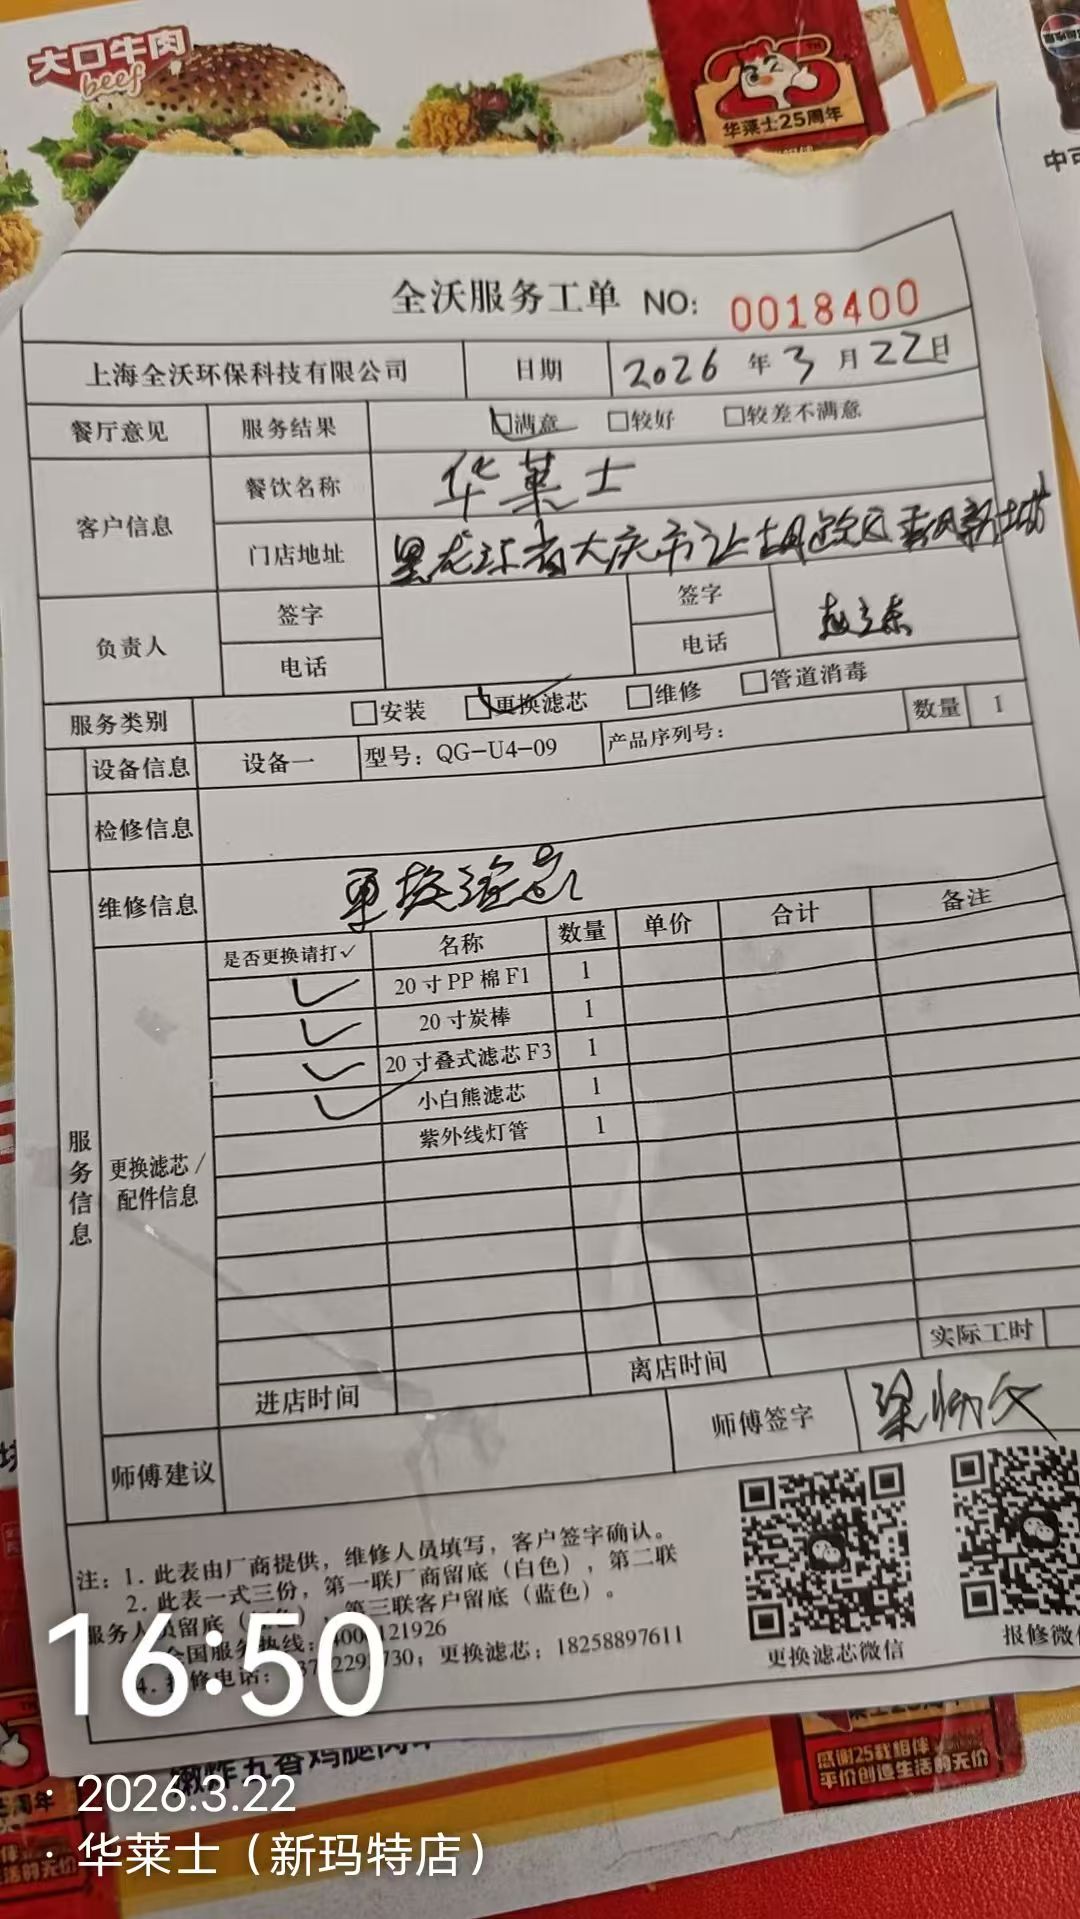 大口牛肉
beef
25
华莱士25周年
中可
全沃服务工单 NO: 0018400
上海全沃环保科技有限公司 日期 2026 年 3 月 22 日
餐厅意见 服务结果 □满意 □较好 □较差不满意
客户信息 餐饮名称 华莱士
门店地址 黑龙江省大庆市让胡路区
负责人 签字 签字
电话 电话
服务类别 □安装 □更换滤芯 □维修 □管道消毒
设备信息 设备一 型号: QG-U4-09 产品序列号: 数量 1
检修信息
维修信息 更换滤芯
服务信息
更换滤芯/
配件信息
是否更换请打✓ 名称 数量 单价 合计 备注
✓ 20寸PP棉F1 1
✓ 20寸炭棒 1
✓ 20寸叠式滤芯F3 1
✓ 小白熊滤芯 1
紫外线灯管 1
实际工时
进店时间 离店时间
师傅建议 师傅签字
注: 1. 此表由厂商提供，维修人员填写，客户签字确认。
2. 此表一式三份，第一联厂商留底（白色），第二联
服务人员留底 第三联客户留底（蓝色）。
全国服务热线: 121926
4. 报修电话: 730; 更换滤芯: 18258897611
更换滤芯微信
报修微信
16:50
2026.3.22
华莱士（新玛特店）
感谢25载相伴
平价创造生活的无价